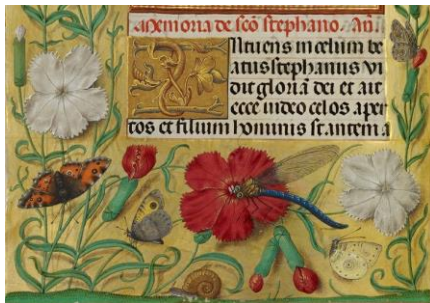 Memoria de scō stephano. Añ.
Intuens in celum be
atus stephanus vi
dit gloriā dei et ait
ecce video celos aper
tos et filium hominis stantem a